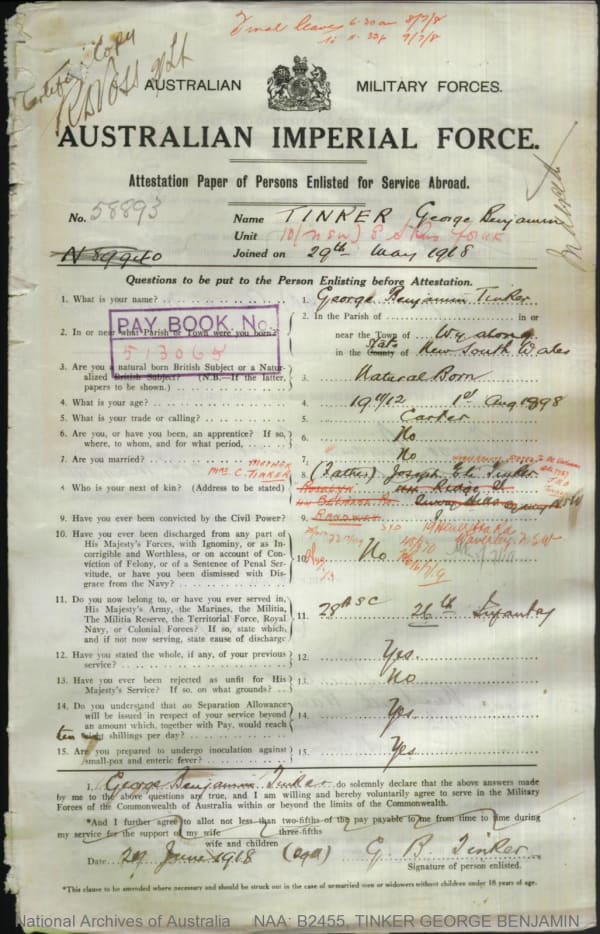 Final leave 6.30 am 8/7/8
to 11.30p 9/7/8
Certified Copy
AUSTRALIAN MILITARY FORCES.
AUSTRALIAN IMPERIAL FORCE.
Attestation Paper of Persons Enlisted for Service Abroad.
No. 58893
Name TINKER George Benjamin
Unit
Joined on 29th May 1918
Questions to be put to the Person Enlisting before Attestation.
1. What is your name? 1. George Benjamin Tinker
PAY BOOK No.
513065
2. In or near what Parish or Town were you born? 2. In the Parish of in or
near the Town of Wyalong
in the County of State New South Wales
3. Are you a natural born British Subject or a Natur-
alized British Subject? (N.B.—If the latter,
papers to be shown.) 3. Natural Born
4. What is your age? 4. 19 9/12 1st Aug 1898
5. What is your trade or calling? 5. Carter
6. Are you, or have you been, an apprentice? If so,
where, to whom, and for what period, 6. No
7. Are you married? 7. No
MOTHER
MRS C. TINKER
4 Who is your next of kin? (Address to be stated) 8 (Father) Joseph Tinker
Ridge St
9. Have you ever been convicted by the Civil Power? 9.
10. Have you ever been discharged from any part of
His Majesty's Forces, with Ignominy, or as In-
corrigible and Worthless, or on account of Con-
viction of Felony, or of a Sentence of Penal Ser-
vitude, or have you been dismissed with Dis-
grace from the Navy? 10. No
11. Do you now belong to, or have you ever served in,
His Majesty's Army, the Marines, the Militia,
The Militia Reserve, the Territorial Force, Royal
Navy, or Colonial Forces? If so, state which,
and if not now serving, state cause of discharge 11. 28th SC 26th Infantry
12. Have you stated the whole, if any, of your previous
service? 12. Yes.
13. Have you ever been rejected as unfit for His
Majesty's Service? If so, on what grounds? 13. No
14. Do you understand that no Separation Allowance
will be issued in respect of your service beyond
an amount which, together with Pay, would reach
ten eight shillings per day? 14. Yes.
15. Are you prepared to undergo inoculation against
small-pox and enteric fever? 15. Yes
I, George Benjamin Tinker do solemnly declare that the above answers made
by me to the above questions are true, and I am willing and hereby voluntarily agree to serve in the Military
Forces of the Commonwealth of Australia within or beyond the limits of the Commonwealth.
*And I further agree to allot not less than two-fifths of the pay payable to me from time to time during
three-fifths
my service for the support of my wife
wife and children
Date 29 June 1918 (sgd) G B Tinker
Signature of person enlisted.
*This clause to be amended where necessary and should be struck out in the case of unmarried men or widowers without children under 18 years of age.
National Archives of Australia NAA: B2455, TINKER GEORGE BENJAMIN